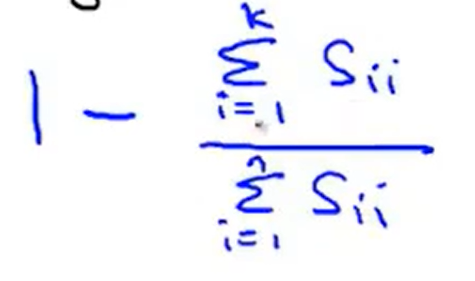 1 - \frac{\sum_{i=1}^{k} S_{ii}}{\sum_{i=1}^{n} S_{ii}}